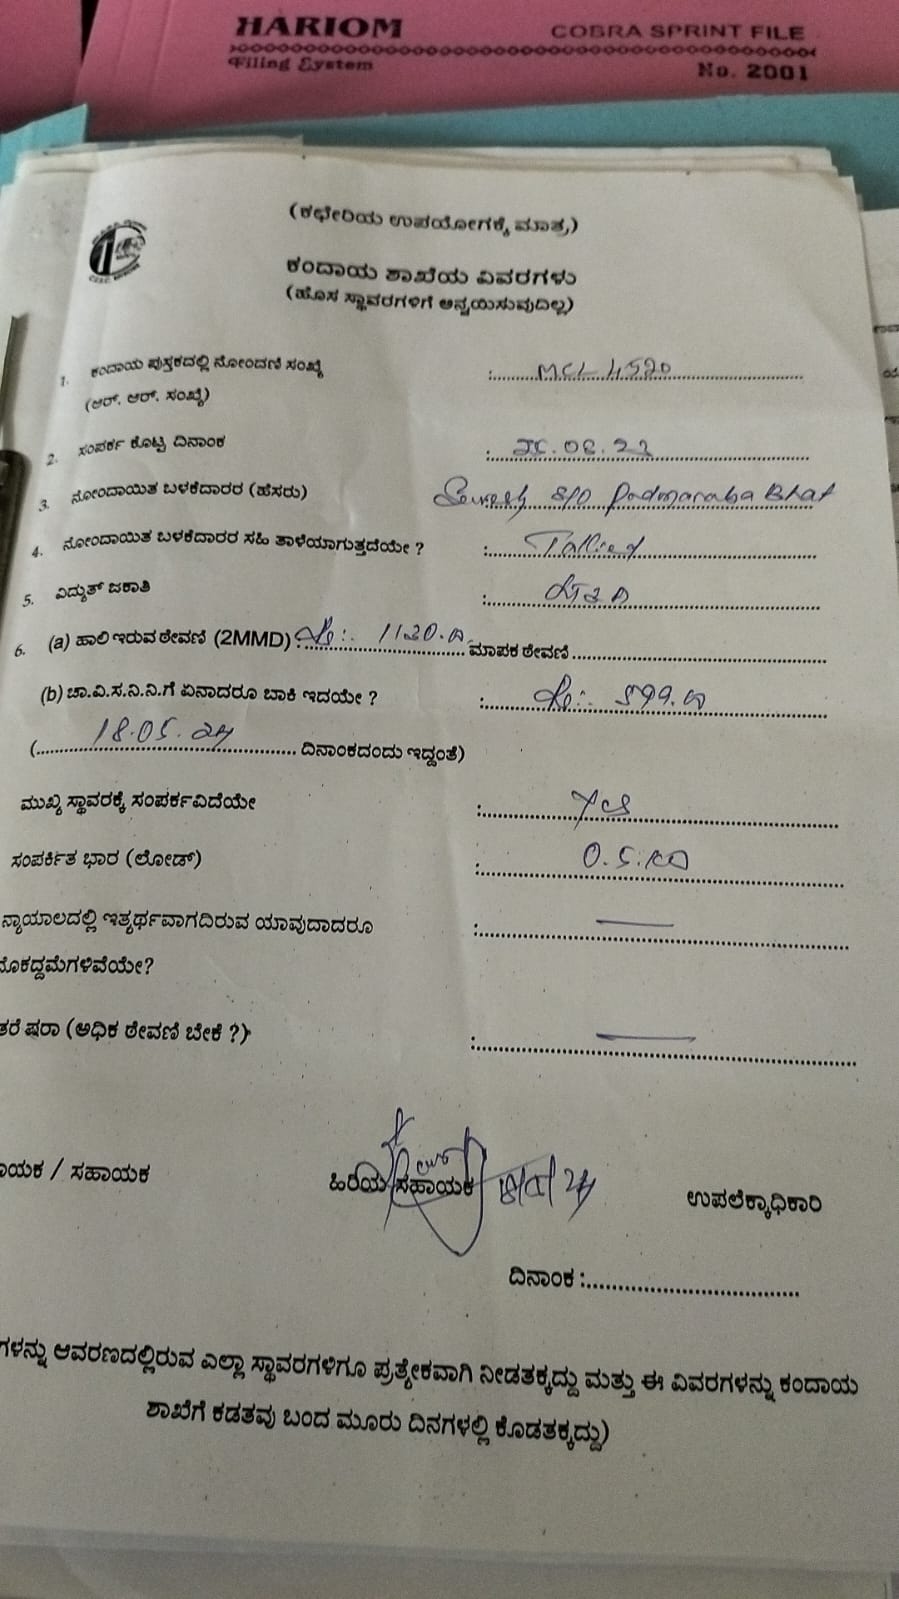 HARIOM COBRA SPRINT FILE
Filing System No. 2001
(ಕಛೇರಿಯ ಉಪಯೋಗಕ್ಕೆ ಮಾತ್ರ)
ಕಂದಾಯ ಶಾಖೆಯ ವಿವರಗಳು
(ಹೊಸ ಸ್ಥಾವರಗಳಿಗೆ ಅನ್ವಯಿಸುವುದಿಲ್ಲ)
1. ಕಂದಾಯ ಪುಸ್ತಕದಲ್ಲಿ ನೋಂದಣಿ ಸಂಖ್ಯೆ : MCL 4520
(ಆರ್. ಆರ್. ಸಂಖ್ಯೆ)
2. ಸಂಪರ್ಕ ಕೊಟ್ಟ ದಿನಾಂಕ :
3. ನೋಂದಾಯಿತ ಬಳಕೆದಾರರ (ಹೆಸರು) Suresh S/O Padmanaba Bhat
4. ನೋಂದಾಯಿತ ಬಳಕೆದಾರರ ಸಹಿ ತಾಳೆಯಾಗುತ್ತದೆಯೇ ? : Tallied
5. ವಿದ್ಯುತ್ ಜಕಾತಿ :
6. (a) ಹಾಲಿ ಇರುವ ಠೇವಣಿ (2MMD) : Rs:. 1120.00 ಮಾಪಕ ಠೇವಣಿ
(b) ಚಾ.ವಿ.ಸ.ನಿ.ನಿ.ಗೆ ಏನಾದರೂ ಬಾಕಿ ಇದಯೇ ? : Rs:. 599.00
( 18.05.24 ದಿನಾಂಕದಂದು ಇದ್ದಂತೆ)
ಮುಖ್ಯ ಸ್ಥಾವರಕ್ಕೆ ಸಂಪರ್ಕವಿದೆಯೇ : Yes
ಸಂಪರ್ಕಿತ ಭಾರ (ಲೋಡ್) :
ನ್ಯಾಯಾಲದಲ್ಲಿ ಇತ್ಯರ್ಥವಾಗದಿರುವ ಯಾವುದಾದರೂ : —
ಮೊಕದ್ದಮೆಗಳಿವೆಯೇ?
ತರೆ ಷರಾ (ಅಧಿಕ ಠೇವಣಿ ಬೇಕೆ ?) : —
ಾಯಕ / ಸಹಾಯಕ ಹಿರಿಯ ಸಹಾಯಕ ಉಪಲೆಕ್ಕಾಧಿಕಾರಿ
ದಿನಾಂಕ :
ಗಳನ್ನು ಆವರಣದಲ್ಲಿರುವ ಎಲ್ಲಾ ಸ್ಥಾವರಗಳಿಗೂ ಪ್ರತ್ಯೇಕವಾಗಿ ನೀಡತಕ್ಕದ್ದು ಮತ್ತು ಈ ವಿವರಗಳನ್ನು ಕಂದಾಯ
ಶಾಖೆಗೆ ಕಡತವು ಬಂದ ಮೂರು ದಿನಗಳಲ್ಲಿ ಕೊಡತಕ್ಕದ್ದು)